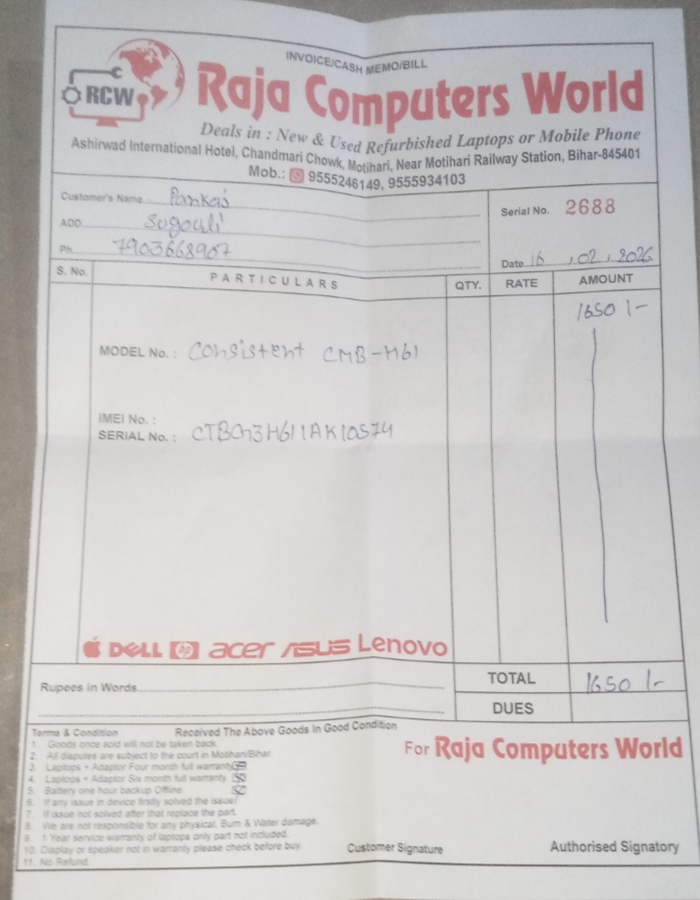 INVOICE/CASH MEMO/BILL
RCW
Raja Computers World
Deals in : New & Used Refurbished Laptops or Mobile Phone
Ashirwad International Hotel, Chandmari Chowk, Motihari, Near Motihari Railway Station, Bihar-845401
Mob.: 9555246149, 9555934103
Customer's Name Pankaj
ADD Sugauli
Ph. 7903668907
Serial No. 2688
Date 16.02.2026
S. No. PARTICULARS QTY. RATE AMOUNT
1650 1-
MODEL No. : Consistent CMB-H61
IMEI No. :
SERIAL No. :
DELL hp acer ASUS Lenovo
Rupees in Words
TOTAL 1650 1-
DUES
Terms & Condition Received The Above Goods In Good Condition
1. Goods once sold will not be taken back.
2. All disputes are subject to the court in Motihari/Bihar.
3. Laptops + Adaptor Four month full warranty
4. Laptops + Adaptor Six month full warranty
5. Battery one hour backup Offline.
6. If any issue in device firstly solved the issue
7. If issue not solved after that replace the part.
8. We are not responsible for any physical, Burn & Water damage.
9. 1 Year service warranty of laptops only part not included.
10. Display or speaker not in warranty please check before buy.
11. No Refund.
For Raja Computers World
Customer Signature
Authorised Signatory